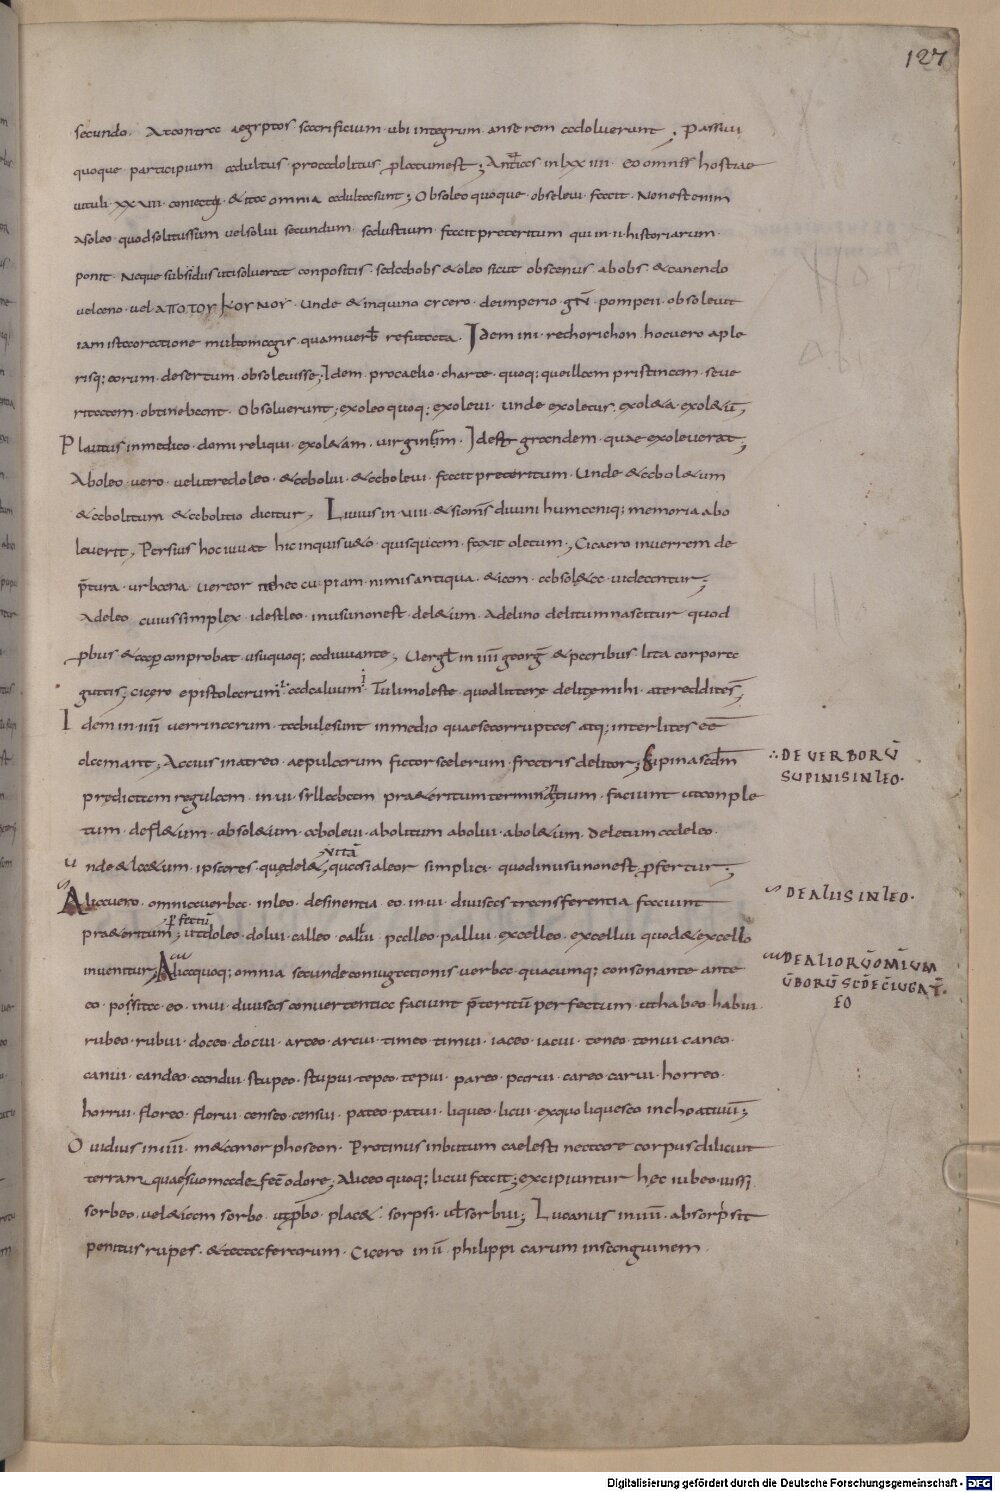 127
secundo. At contra aegyptos sacrificium ubi integrum anserem adoluerunt; Passiui
quoque participium adultus pro adolitus placitum est; Antias in lxx iiii. eo omnes hostiae
uituli xx uii. coniectiq; & ita omnia adulta sunt; Obsoleo quoque obsoleui facit. Non est enim
a soleo quod solitus sum uel solui secundum salustium facit preteritum qui in ii historiarum
ponit. Neque subsidiis uti soluerat conpositis. sed ab obs & oleo sicut obscenus ab obs & canendo
uel ceno. uel Unde & inquino cicero. de imperio. gn̄. pompeii. obsoleuit
iam ista oratione multo magis quam uerb refutata. Idem in i. rethorichon hoc uero a ple
risq; eorum desertum obsoleuisse; Idem pro caelio. charte quoq; que illam pristinam seue
ritatem obtinebant. Obsoluerunt; exoleo quoq; exoleui unde exoletus. exol&a. exol&ū;
Plautus in medico. domi reliqui exol&am uirginem. Id est grandem. quae exoleuerat;
Aboleo uero. uelut redoleo. & abolui & aboleui facit preteritum. Unde & abol&um
& abolitum & abolitio dicitur; Liuius in uiii. & si omis diuini humaniq; memoria abo
leuerit; Persius hoc iuuat hic inquis u&o quisquam faxit oletum; Cicaero in uerrem de
p̄tura urbana uereor ne hec cu piam nimis antiqua & iam obsol&a uideantur;
Adeleo cuius simplex id est leo in usu non est del&um. Adelino delitum nascitur quod
pbus & caper conprobat usu quoq; adiuuante; Uergl in iiii georḡ & paribus lita corpora
guttis; cicero epistolarum i. ad caluum i Tuli moleste quod littere delite mihi a te reddites;
Idem in iiii uerrinarum tabule sunt in medio quae se corruptas atq; interlites eē
clamant; Accius in atreo. aepularum fictor scelerum fratris delitor; supina scdm
predictam regulam in ui syllabam pra&eritum terminatium faciunt ut conple
tum. defl&um. obsol&um. aboleui abolitum abolui abol&um. deletum a deleo.
unde & l&um. ipsa res quedel& uitā qua si a leor simplici quod in usu non est p̄fertur;
Alia uero. omnia uerba in leo. desinentia eo in ui diuisas transferentia faciunt
pra&eritum perfectū; ut doleo. dolui. calleo callui palleo pallui excelleo. excellui quod & excello
inuenitur; Alia quoq; omnia secunde coniugationis uerba quacumq; consonante ante
eo posita eo in ui diuisas conuertentia faciunt p̄teritū perfectum ut habeo habui
rubeo rubui doceo docui arceo arcui timeo timui iaceo iacui teneo tenui caneo
canui candeo candui stupeo stupui tepeo tepui pareo parui careo carui horreo
horrui floreo florui censeo censui pateo patui liqueo licui ex quo liquesco inchoatiuū;
Ouidius in uii m&amorphoseon. Protinus inbutum caelesti nectare corpus dilicuit
terramquae suo made fec̄ odore; Aliceo quoq; licui facit; excipiuntur hec iubeo iussi
sorbeo uel & iam sorbo ut pbo plac& sorpsi ul sorbui; Lucanus in iiii. absorpsit
penitus rupes. & tecta ferarum. Cicero in ii philippicarum in sanguinem.
DE UERBORŪ
SUPINIS IN LEO.
DE ALIIS IN LEO.
DE ALIORŪ OMĪUM
ŪBORŪ SC̄DE C̄IUGAT̄.
EO
Digitalisierung gefördert durch die Deutsche Forschungsgemeinschaft - DFG